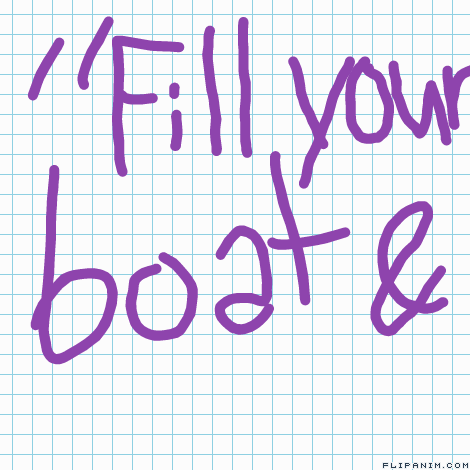 "Fill your
boat &
FLIPANIM.COM